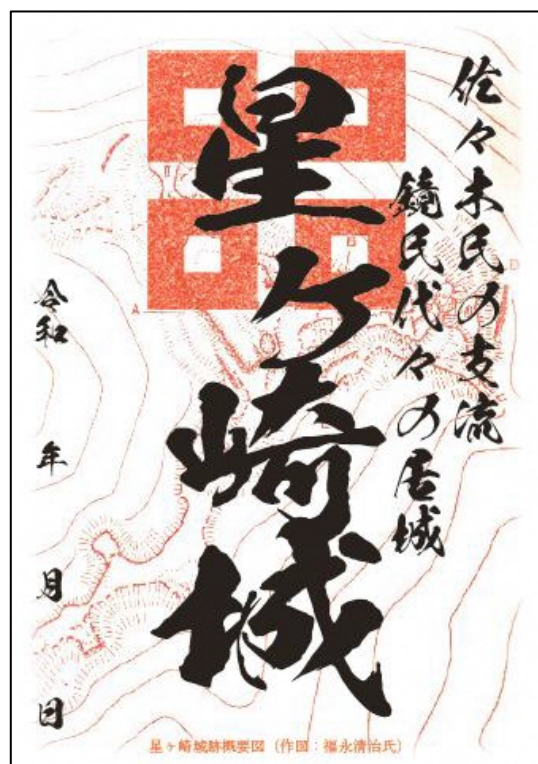 佐々木氏の支流
鏡氏代々の居城
星ケ崎城
令和 年 月 日
A
B
D
星ヶ崎城跡概要図（作図：福永清治氏）